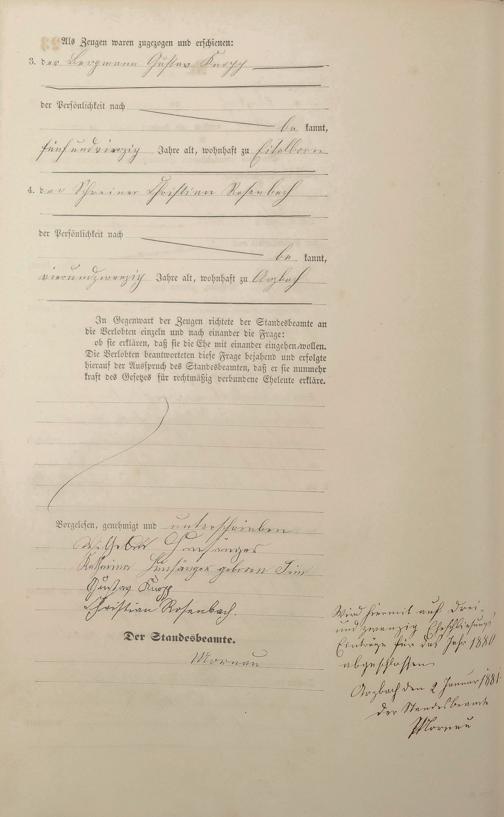 Als Zeugen waren zugezogen und erschienen:
3. der Bergmann Gustav Knopp
der Persönlichkeit nach
be kannt,
fünfundvierzig Jahre alt, wohnhaft zu Eitelborn
4. der Schreiner Christian Rosenbach
der Persönlichkeit nach
be kannt,
vierundzwanzig Jahre alt, wohnhaft zu Arzbach
In Gegenwart der Zeugen richtete der Standesbeamte an
die Verlobten einzeln und nach einander die Frage:
ob sie erklären, daß sie die Ehe mit einander eingehen wollen.
Die Verlobten beantworteten diese Frage bejahend und erfolgte
hierauf der Ausspruch des Standesbeamten, daß er sie nunmehr
kraft des Gesetzes für rechtmäßig verbundene Eheleute erkläre.
Vorgelesen, genehmigt und unterschrieben
Wilhelm
Katharina geboren
Gustav Knopp
Christian Rosenbach.
Der Standesbeamte.
Mornau
Wird hiermit auf drei-
undzwanzig Eheschließungs
Einträge für das Jahr 1880
abgeschlossen
Arzbach den 2 Januar 1881.
Der Standesbeamte
Mornau